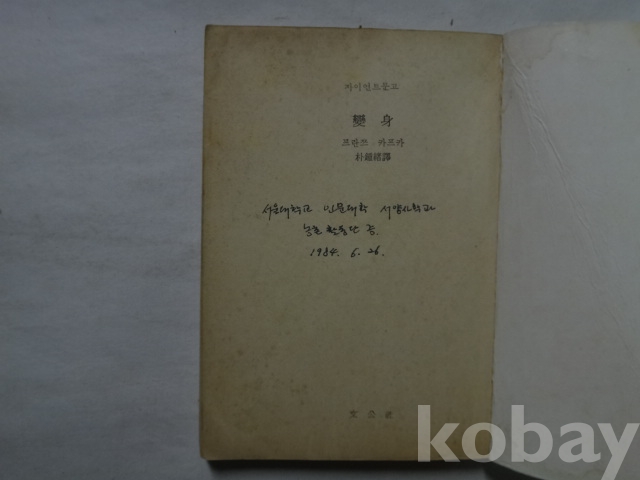 자이언트문고
變身
프란쯔 · 카프카
朴鍾緖譯
서울대학교 인문대학 서양사학과
농촌활동단 증.
1984. 6. 26.
文公社
kobay